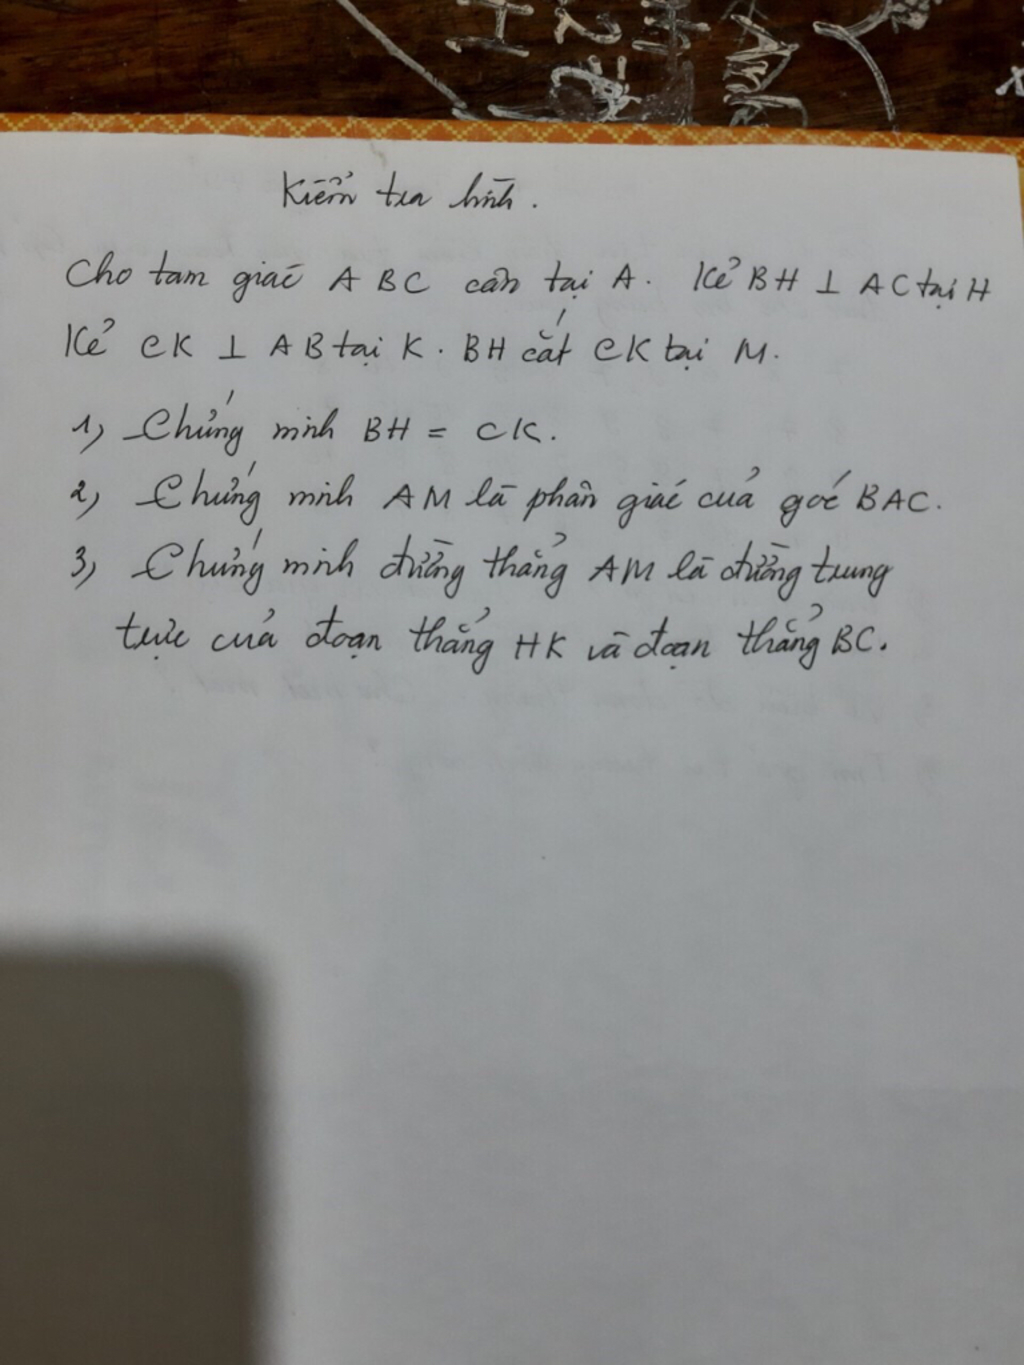 Kiểm tra hình.
Cho tam giác ABC cân tại A. Kẻ BH ⊥ AC tại H
Kẻ CK ⊥ AB tại K. BH cắt CK tại M.
1) Chứng minh BH = CK.
2) Chứng minh AM là phân giác của góc BAC.
3) Chứng minh đường thẳng AM là đường trung
trực của đoạn thẳng HK và đoạn thẳng BC.